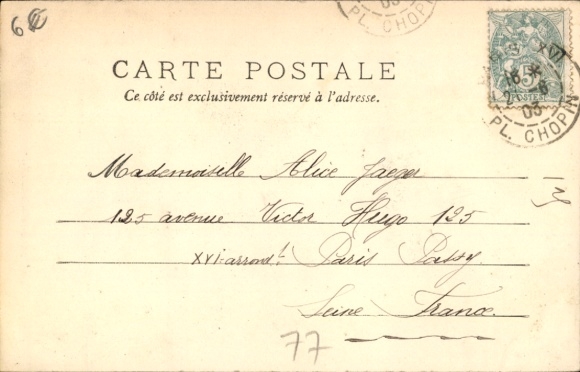 6€
03
PL. CHOPIN
XVI
5
POSTES
03
PL. CHOPIN
CARTE POSTALE
Ce côté est exclusivement réservé à l'adresse.
Mademoiselle Alice Jaeger
125 avenue Victor Hugo 125
XVI-arrondt. Paris Passy
Seine France.
77